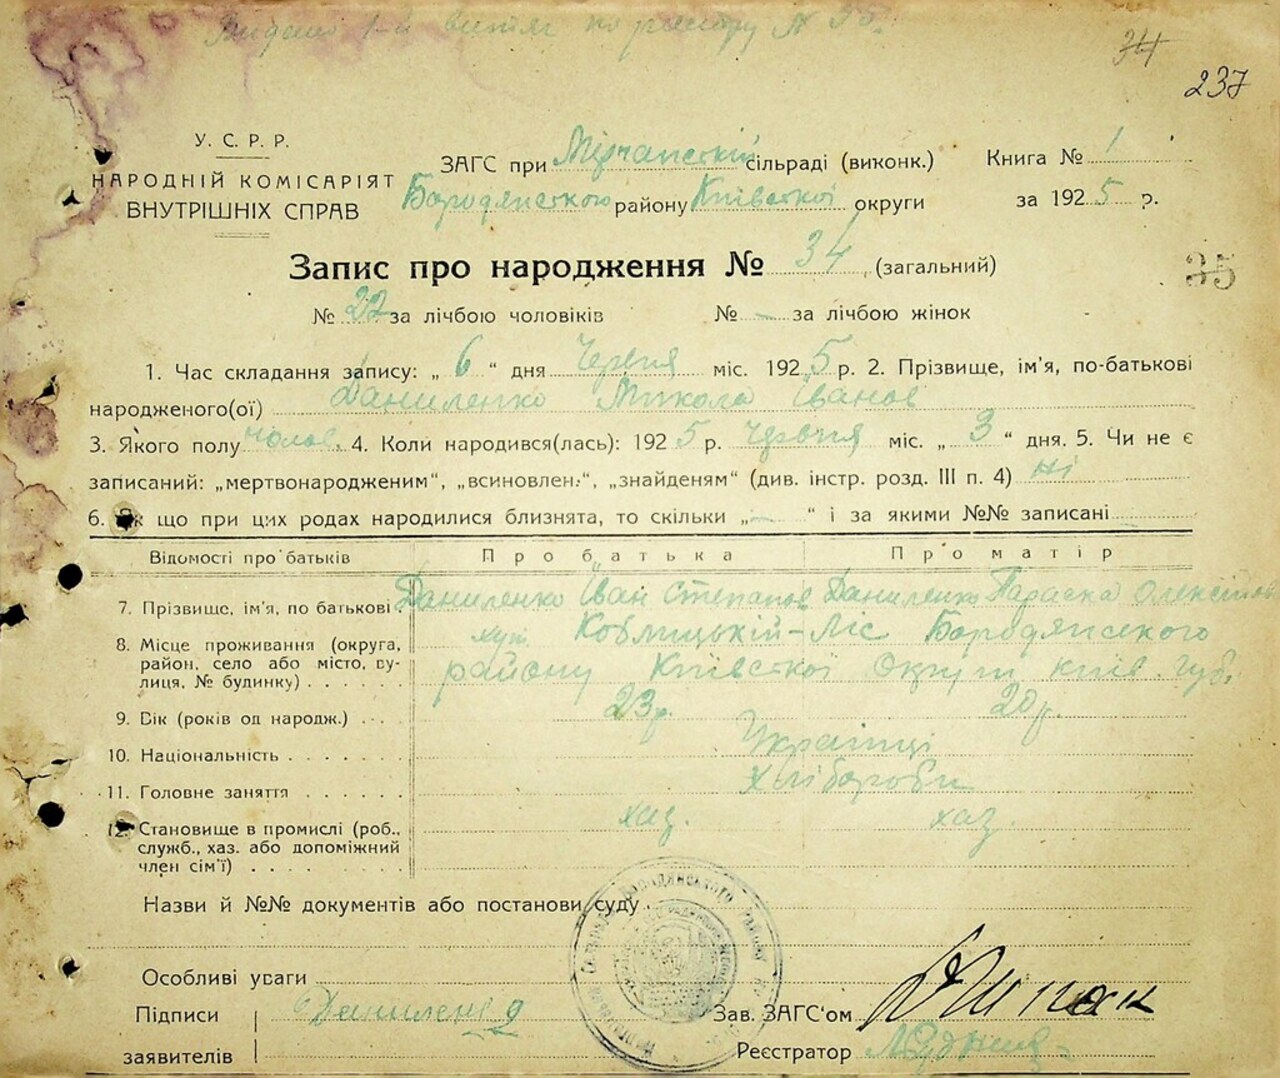 Видано 1-й витяг по реєстру № 95.
34
237
У. С. Р. Р.
НАРОДНІЙ КОМІСАРІЯТ
ВНУТРІШНІХ СПРАВ
ЗАГС при Мірчанській сільраді (виконк.) Книга № 1
Бородянсткого району Київсткої округи за 1925 р.
Запис про народження № 34 (загальний)
35
№ 22 за лічбою чоловіків № — за лічбою жінок
1. Час складання запису: „ 6 “ дня Червня міс. 1925 р. 2. Прізвище, ім'я, по-батькові
народженого(ої) Даниленко Микола Іванов
3. Якого полу чолов. 4. Коли народився(лась): 1925 р. червня міс. „ 3 “ дня. 5. Чи не є
записаний: „мертвонародженим“, „всиновлен.“, „знайденям“ (див. інстр. розд. III п. 4) ні
6. Як що при цих родах народилися близнята, то скільки „ — “ і за якими №№ записані
Відомості про батьків Про батька Про матір
7. Прізвище, ім'я, по батькові Даниленко Іван Степанов Даниленко Параска Олексіїов
8. Місце проживання (округа, район, село або місто, вулиця, № будинку) хут. Коблицькій-Ліс Бородянсекого
району Київсткої Округи Київ. Губ.
9. Вік (років од народж.) 23 р. 20 р.
10. Національність Українці
11. Головне заняття Хлібороби
12. Становище в промислі (роб., хаз. хаз.
служб., хаз. або допоміжний
член сім'ї)
Назви й №№ документів або постанови суду
Особливі уваги
Підписи Даниленко Зав. ЗАГС'ом
заявителів Реєстратор